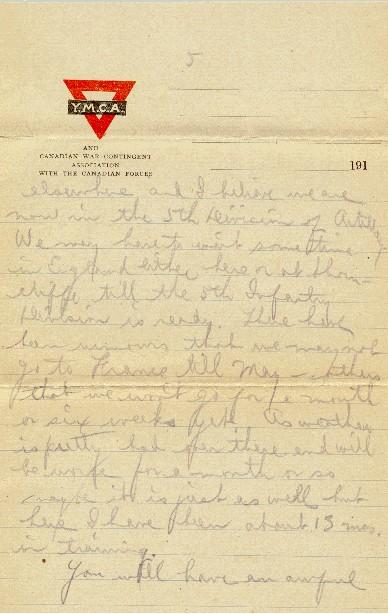 5
Y.M.C.A.
AND
CANADIAN WAR CONTINGENT
ASSOCIATION
WITH THE CANADIAN FORCES
191
elsewhere and I believe we are
now in the 5th Division of Artillery
We may have to wait some time
in England either here or at Shorn-
cliffe till the 5th Infantry
Division is ready. There have
been rumours that we may not
go to France till May - others
that we won't go for a month
or six weeks yet. As weather
is pretty bad over there and will
be worse for a month or so
maybe it is just as well but
here I have been about 15 mos.
in training.
You will have an awful